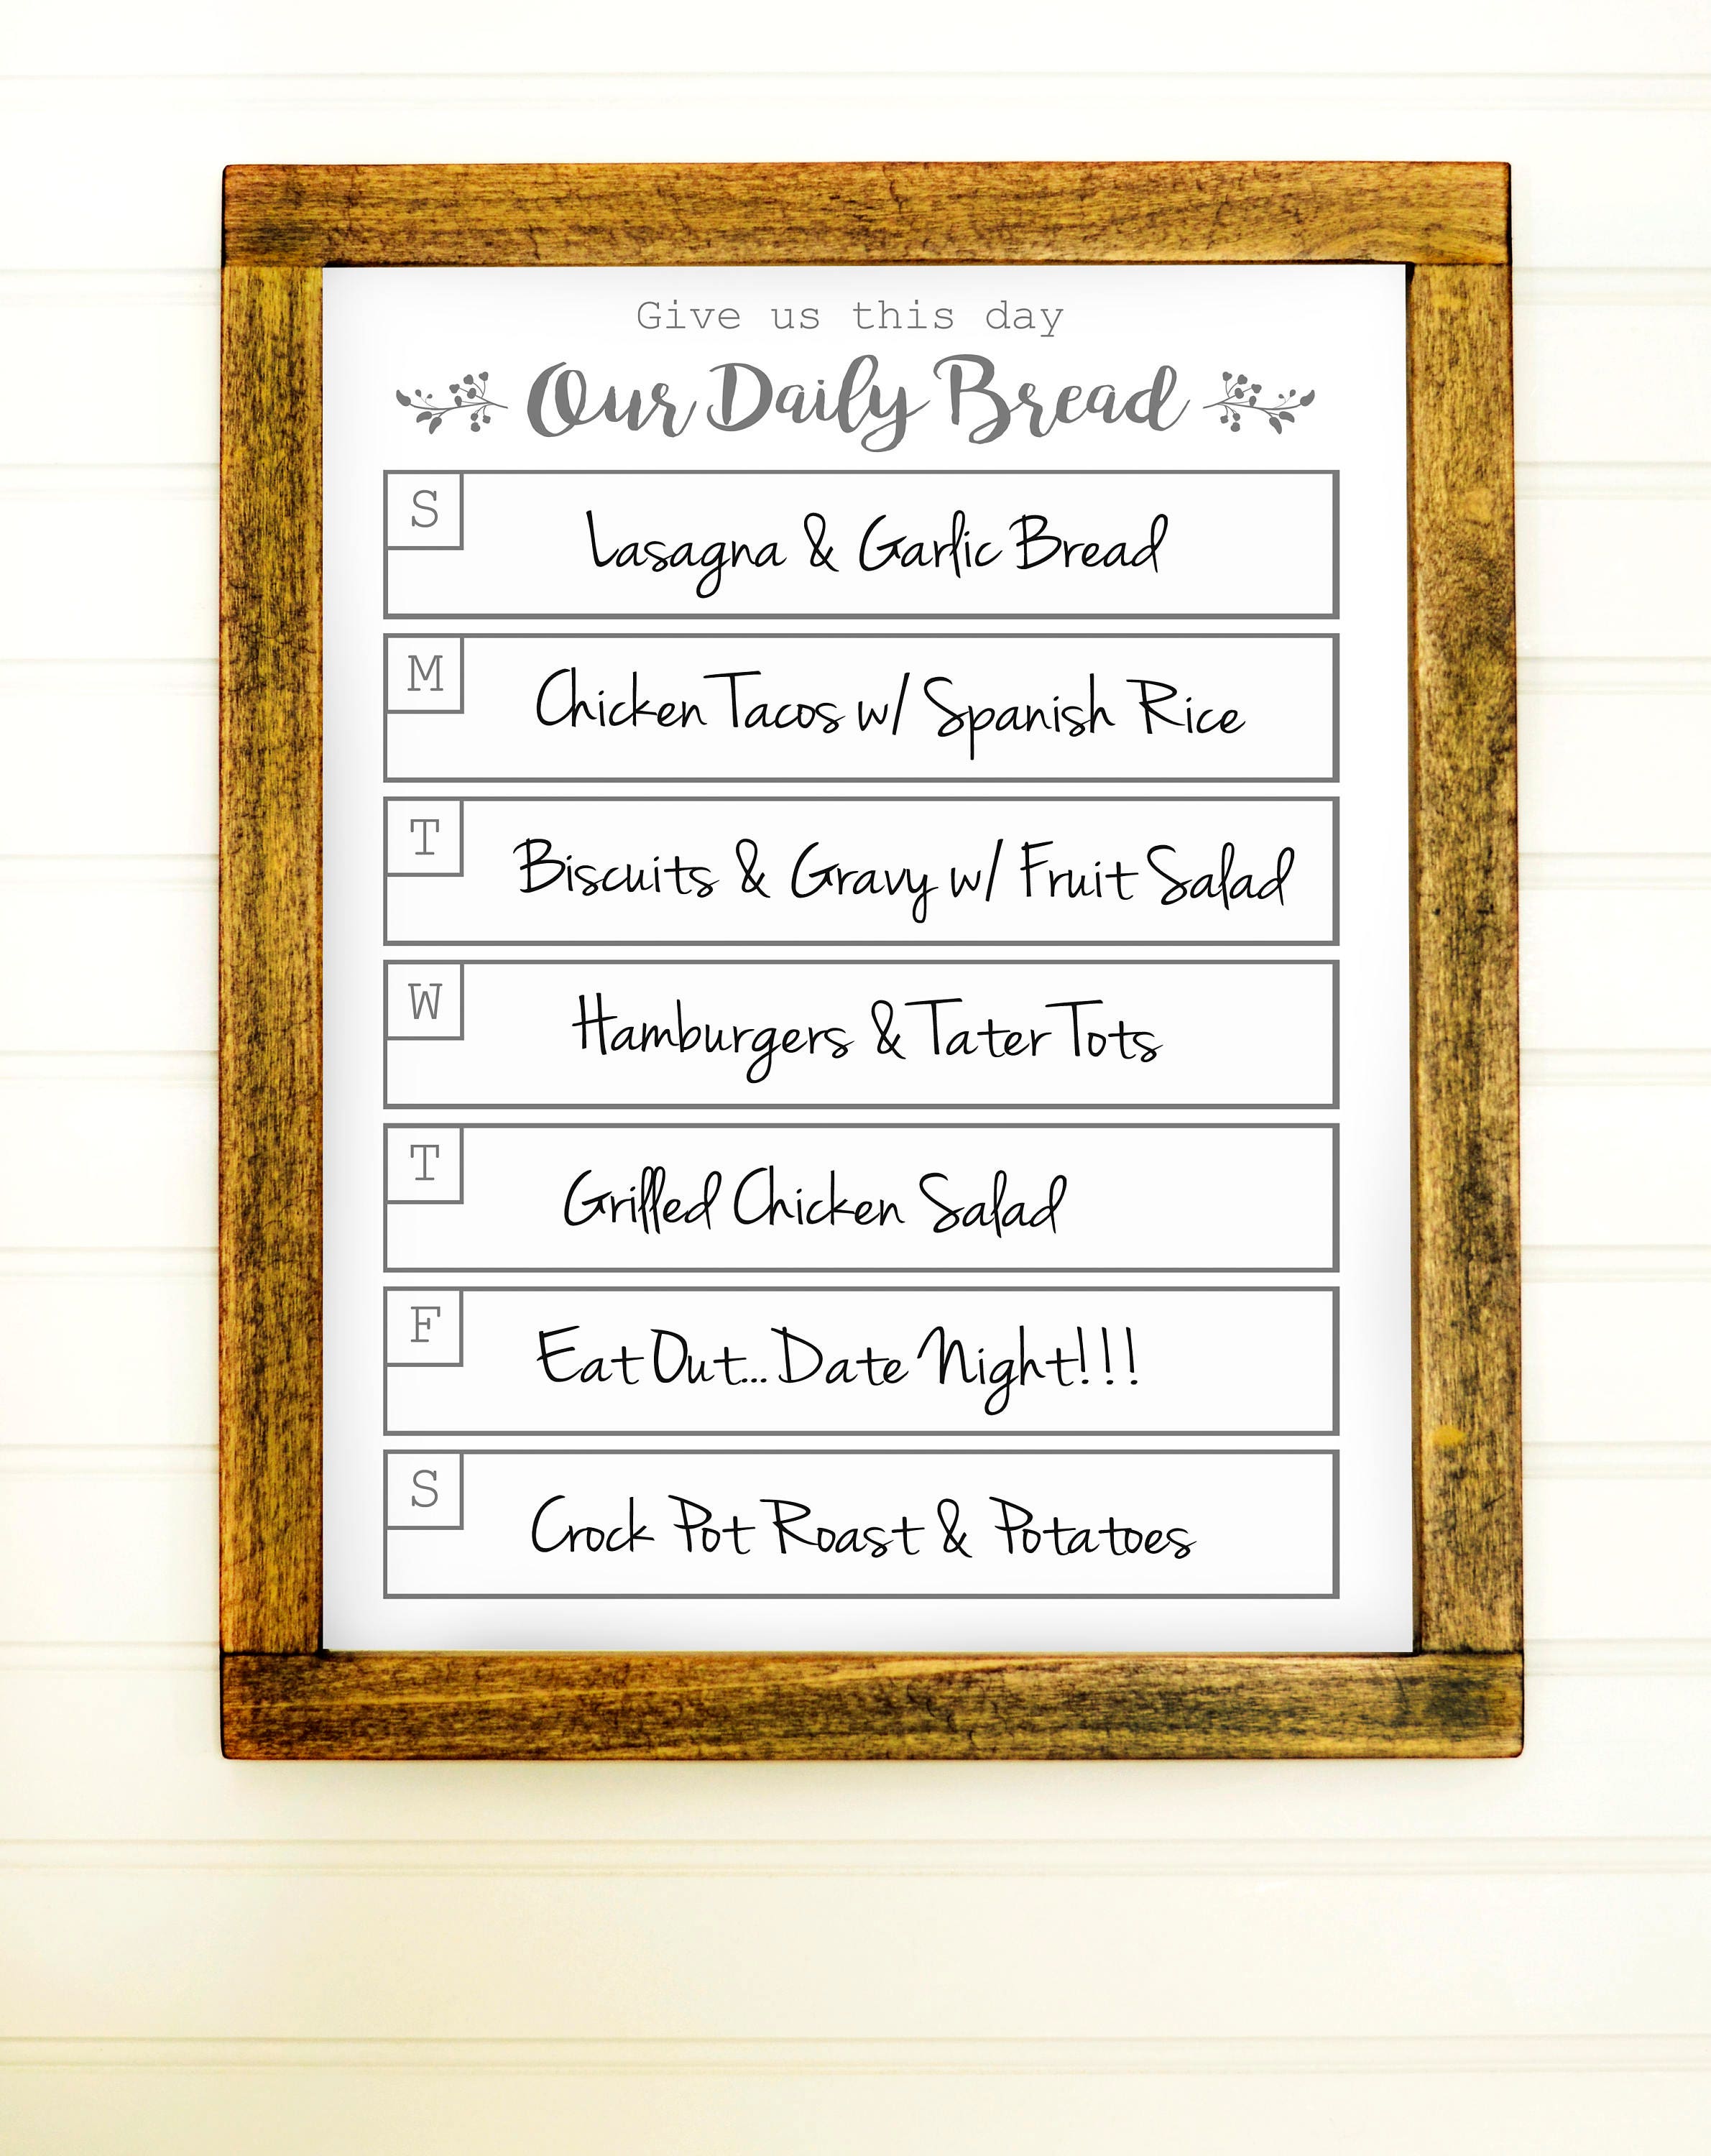 Give us this day
Our Daily Bread
S
Lasagna & Garlic Bread
M
Chicken Tacos w/ Spanish Rice
T
Biscuits & Gravy w/ Fruit Salad
W
Hamburgers & Tater Tots
T
Grilled Chicken Salad
F
Eat Out... Date Night!!!
S
Crock Pot Roast & Potatoes